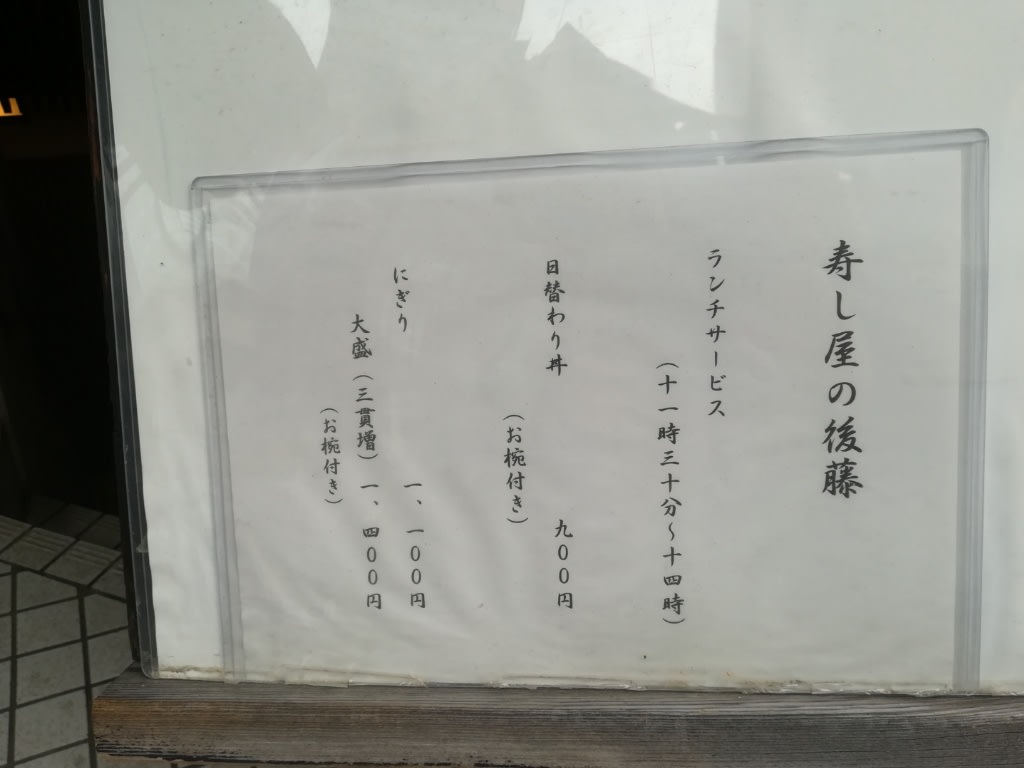 寿し屋の後藤
ランチサービス
(十一時三十分~十四時)
日替わり丼 九00円
(お椀付き)
にぎり 一、一00円
大盛(三貫増) 一、四00円
(お椀付き)